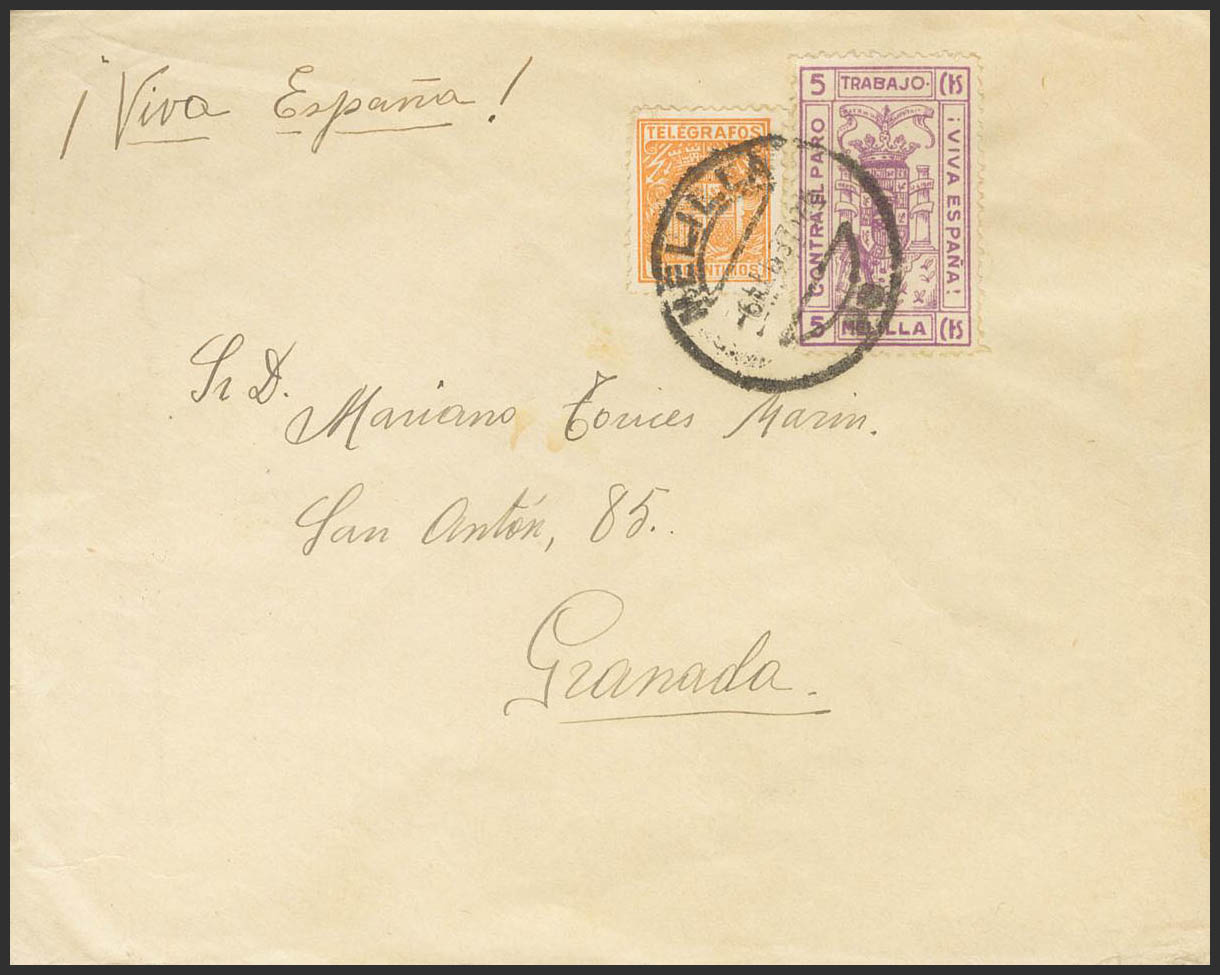 ¡Viva España!
TELÉGRAFOS
5 TRABAJO. cts
CONTRA EL PARO
¡VIVA ESPAÑA!
5 MELILLA cts
MELILLA
Sr D.
Mariano Torices Marin.
San Antón, 85.
Granada.